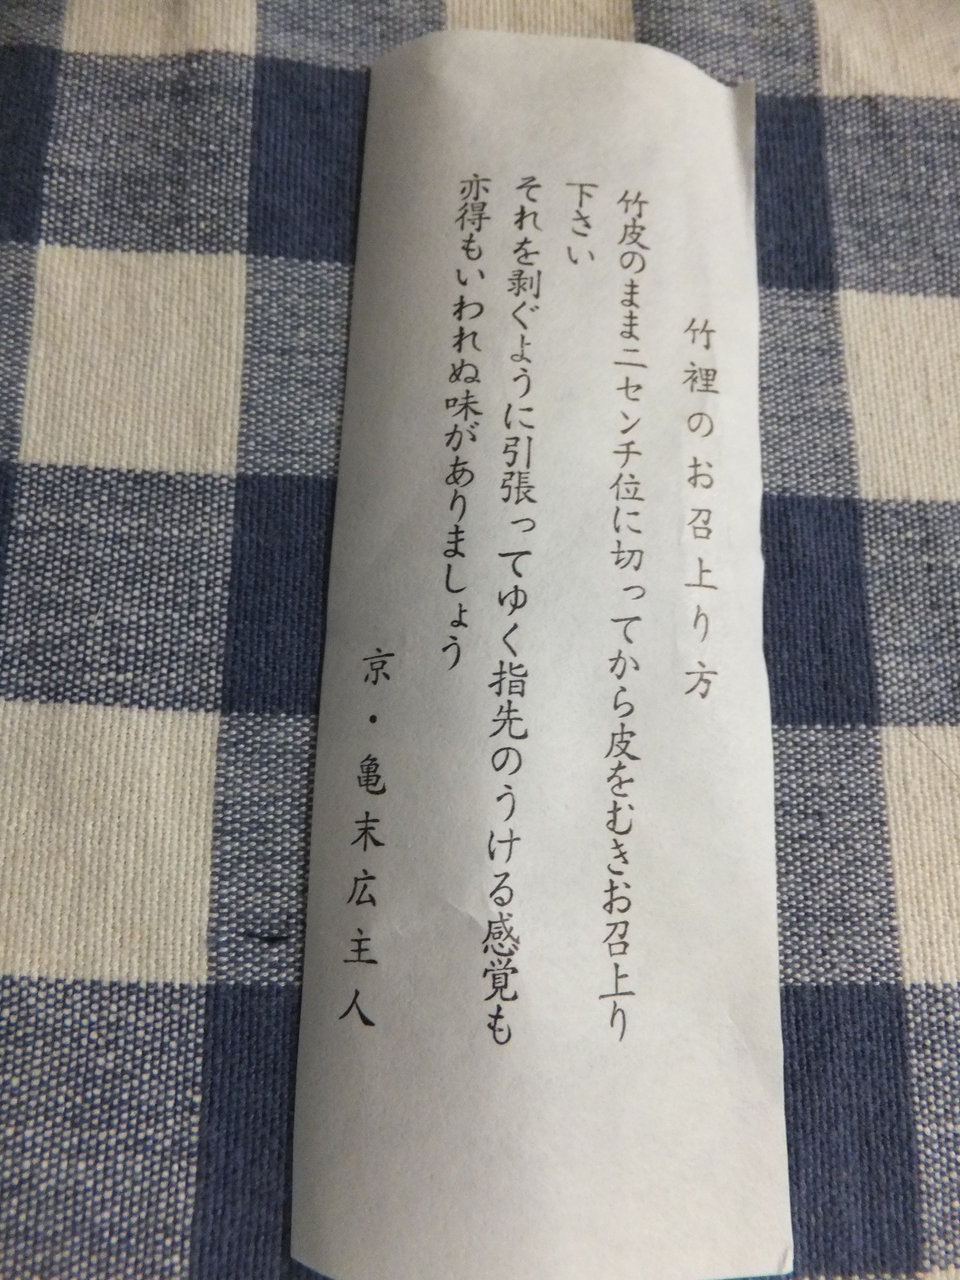 竹裡のお召上り方
竹皮のまま二センチ位に切ってから皮をむきお召上り
下さい
それを剥ぐように引張ってゆく指先のうける感覚も
亦得もいわれぬ味がありましょう
京・亀末広主人